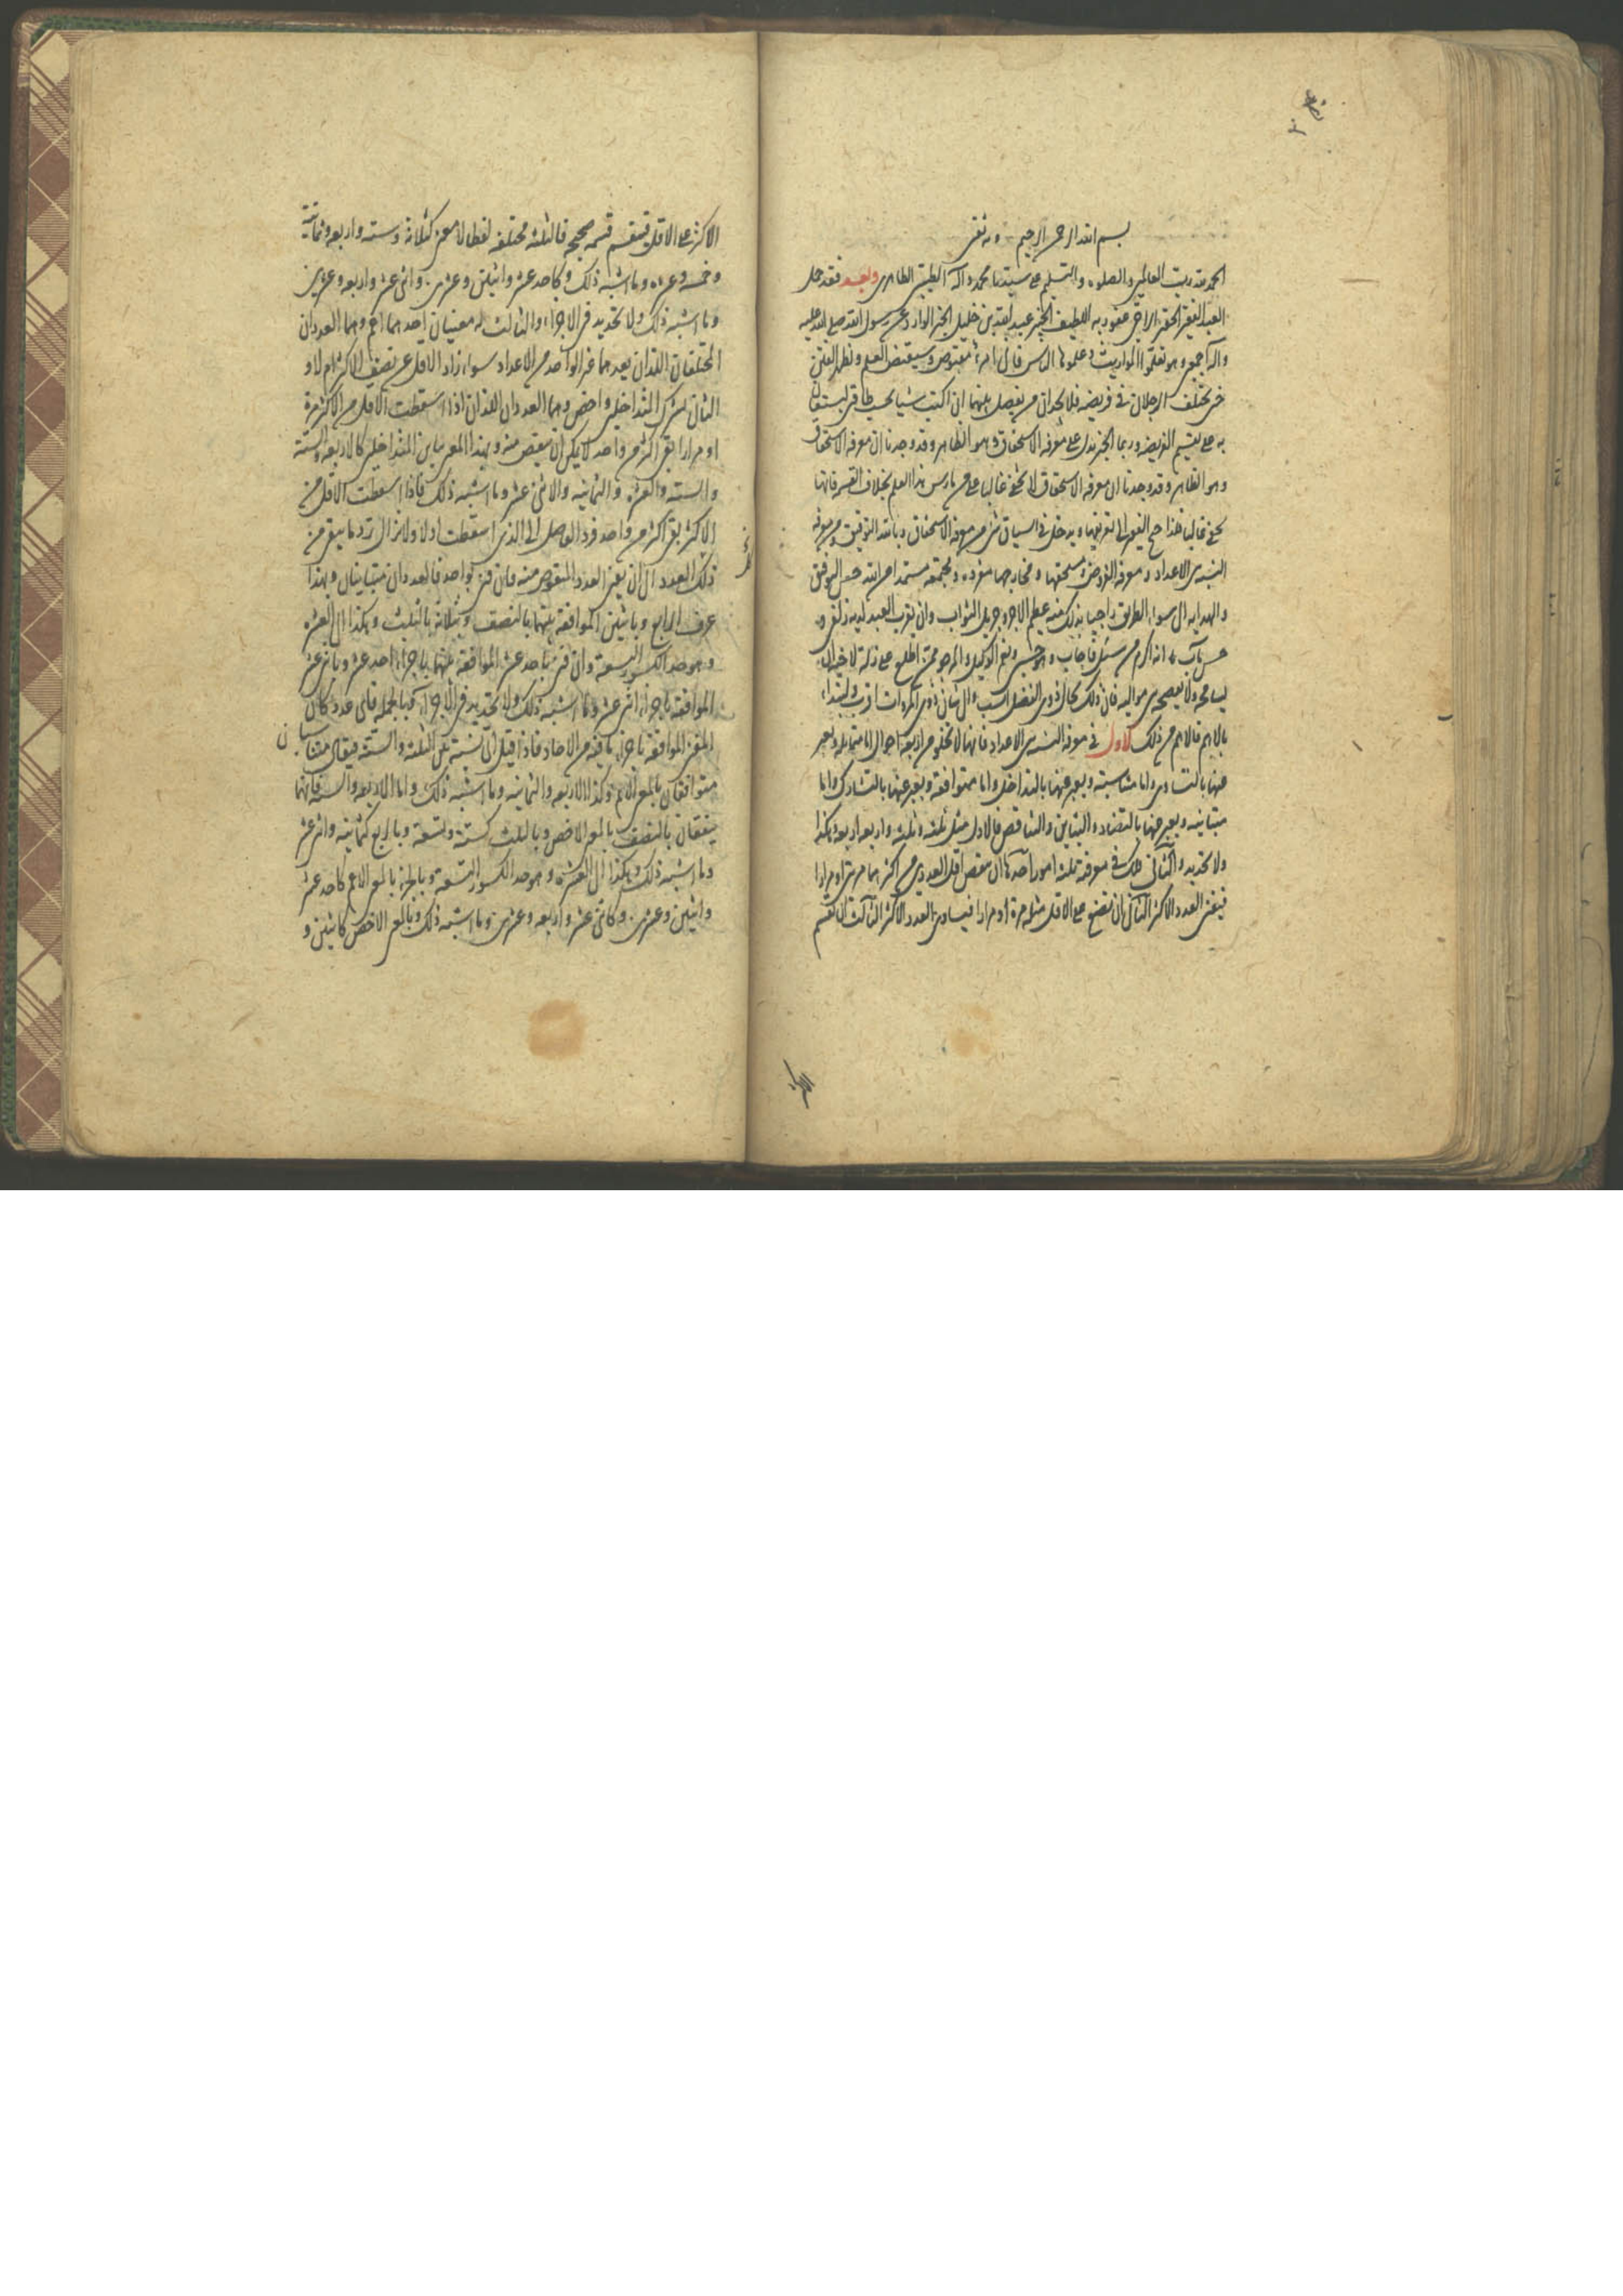 بسم الله الرحمن الرحيم وبه ثقتى
الحمد لله رب العالمين والصلوه والتسليم على سيدنا محمد وآله الطيبين الطاهرين وبعد فقد حمل
العبد الفقير الحقير الراجى عفو ربه اللطيف الخبير عبد الله بن خليل الخبر الوارد عن رسول الله صلى الله عليه
وآله اجمعين وهو تعلموا المواريث وعلموها الناس فانى امرء مقبوض وسيقبض العلم وتظهر الفتن
حتى يختلف الرجلان فى فريضه فلا يجدان من يفصل بينهما ان اكتب شيا بحسب طاقتى يستعان
به على تقسيم الفريضه وربما الخبر يدل على معرفه الاستحقاق وهو الظاهر وقد وجدنا ان معرفه الاستحقاق
وهو الظاهر وقد وجدنا ان معرفه الاستحقاق لا تخفى غالبا على من مارس هذا العلم بخلاف القسمه فانها
تخفى غالبا فلذا احتيج الفقير الى تعريفها ويدخل فى السياق شئ من معرفه الاستحقاق وبالله التوفيق من معرفه
النسب بين الاعداد ومعرفه الفروض ومستحقها ومخارجها مفرده ومجتمعه مستمدا من الله حسن التوفيق
والهدايه الى سواء الطريق راجيا بذلك منه عظيم الاجر وجزيل الثواب وان يقرب العبد لديه زلفى و
حسن مآب انه اكرم من سئل فاجاب وهو حسبى ونعم الوكيل والمرجو ممن اطلع على زلة لاخيه ان
يسامحه ولا يفضحه بين مواليه فان ذلك بحال ذوى الفضل انسب والى شان ذوى المروات اقرب ولنبتداء
بالاهم فالاهم من ذلك الاول فى معرفه النسب بين الاعداد فانها لا تخلو من اربعه احوال اما متماثله ويعبر
عنها بالتساوى واما متناسبة ويعبر عنها بالتداخل واما متوافقة ويعبر عنها بالتشارك واما
متباينه ويعبر عنها بالتضاد والتباين والتناقص فالاول مثل ثلثه وثلثه واربعه اربعه وهكذا
ولا تحديد والثانى لك فى معرفته ثلثه امور احدها ان ينقص اقل العددين من اكثرهما مرتين او مرارا
فيفنى العدد الاكثر الثانى ان تضع على الاقل مثله مرة او مرارا فيساوى العدد الاكثر الثالث ان تقسم
الاكثر على الاقل فينقسم قسمه صحيحه فالثلثه مختلفه لفظا لا معنى كثلاثة وستة واربعه وثمانية
وخمسه وعشره وما اشبه ذلك وكاحد عشر واثنين وعشرين واثنى عشر واربعه وعشرين
وما اشبه ذلك ولا تحديد فى الاجزاء والثالث له معنيان احدهما اعم وهما العددان
المختلفان اللذان يعدهما غير الواحد من الاعداد سواء زاد الاقل عن نصف الاكثر ام لا و
الثانى يشرك المتداخلين واخص وهما العددان اللذان اذا اسقطت الاقل من الاكثر مرة
او مرارا بقى اكثر من واحد لا يمكن ان ينقص منه وبهذا المعنى يباين المتداخلين كالاربعه والستة
والستة والعشره والثمانيه والاثنى عشر وما اشبه ذلك فاذا اسقطت الاقل من
الاكثر بقى اكثر من واحد فرد الفاضل الى الذى اسقطت اولا ولا تزال ترد ما يبقى من
ذلك العدد الى ان يفنى العدد المنقوص منه فان فنى بواحد فالعددان متباينان وبهذا
عرف الرابع وباثنين الموافقة بينهما بالنصف وبثلاثة بالثلث وهكذا الى العشره
وهو حد الكسور التسعة وان فنى باحد عشر الموافقة بينهما باجزاء احد عشر وباثنى عشر
الموافقة باجزاء اثنى عشر وما اشبه ذلك ولا تحديد فى الاجزاء وبالجملة فاى عدد كان
المفنى الموافقة باجزاء ما فيه من الاحاد فاذا قيل اى نسبة بين الثلثة والستة فيقال متناسبان
متوافقان بالمعنى الاعم وكذا الاربعه والثمانيه وما اشبه ذلك واما الاربعه والستة فانهما
يتفقان بالنصف بالمعنى الاخص وبالثلث كستة وتسعة وبالربع كثمانيه واثنى عشر
وما اشبه ذلك وهكذا الى العشره وهو حد الكسور التسعة وبالجزء بالمعنى الاعم كاحد عشر
واثنين وعشرين وكاثنى عشر واربعه وعشرين وما اشبه ذلك وبالمعنى الاخص كاثنين و